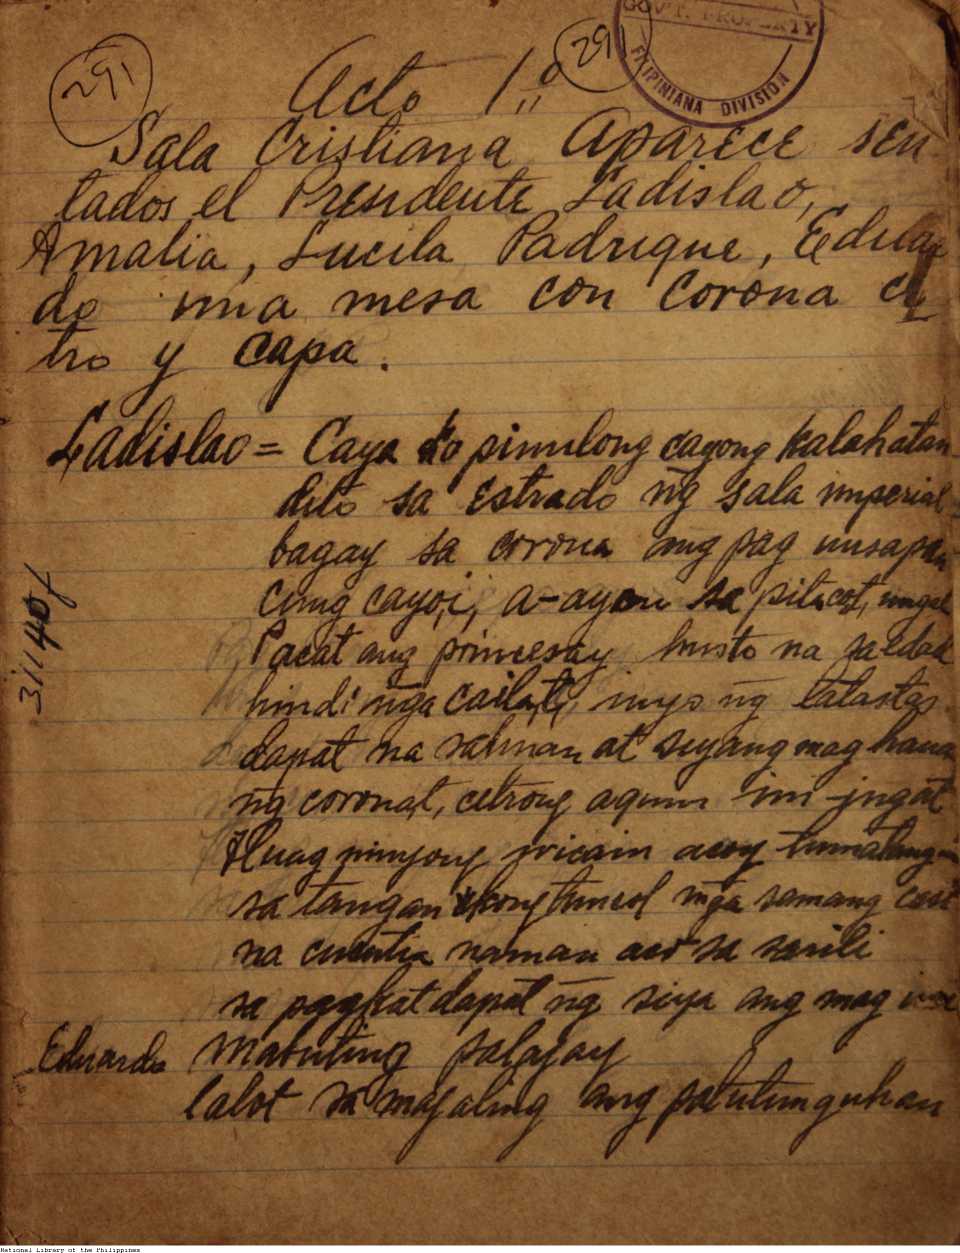 GOV'T. PROPERTY
FILIPINIANA DIVISION
291
291
Acto 1º
Sala Cristiana Aparece sen
tados el Presidente Ladislao,
Amalia, Lucila Padrique, Eduar
do una mesa con corona ce
tro y capa.
Ladislao = Caya ko pinulong cayong kalahatan
dito sa estrado ñg sala imperial
bagay sa corona ang pag uusapan
cung cayo,i, a-ayon sa
Pacat ang princesay husto na sa edad
hindi ñga caila,t, inyo ñg talastas
dapat na naman at siyang mag
ñg corona,t, cetrong aquin ini-ingat
Huag ninyong wicain acoy tumatangui
sa tangan kong tuncol mga samang
na naman aco sa sarili
sa pagkat dapat ñg siya ang mag
Eduardo Mabuting palagay
lalot sa magaling ang patutunguhan
31140f
National Library of the Philippines